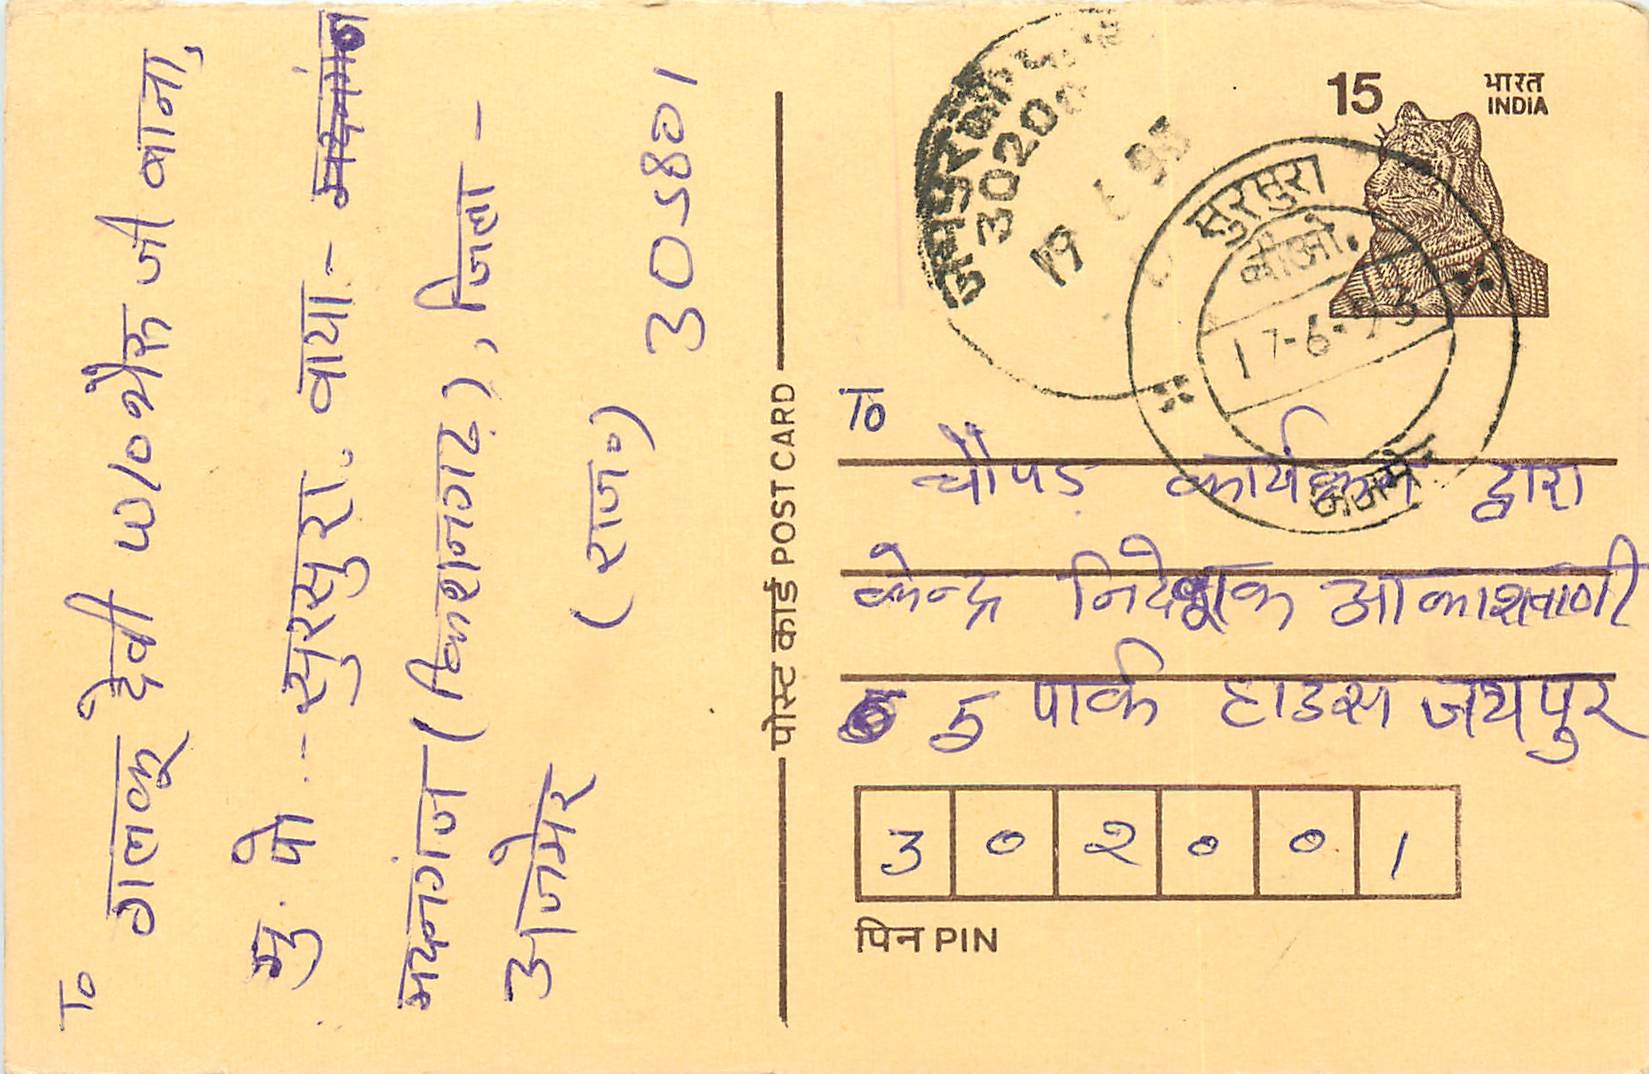 To
गलकू देवी W/० भैरू जी बाना,
मु. पो. - सुरसुरा. वाया -
मदनगंज (किशनगढ़), जिला -
अजमेर (राज०)
305801
पोस्ट कार्ड POST CARD
15 भारत
INDIA
जयपुर
30200
19 6 93
सुरसुरा
बीओ.
17-6-93
अजमेर
To
चौपड़ कार्यक्रम द्वारा
केन्द्र निदेशक आकाशवाणी
5 पार्क हाउस जयपुर
3 0 2 0 0 1
पिन PIN